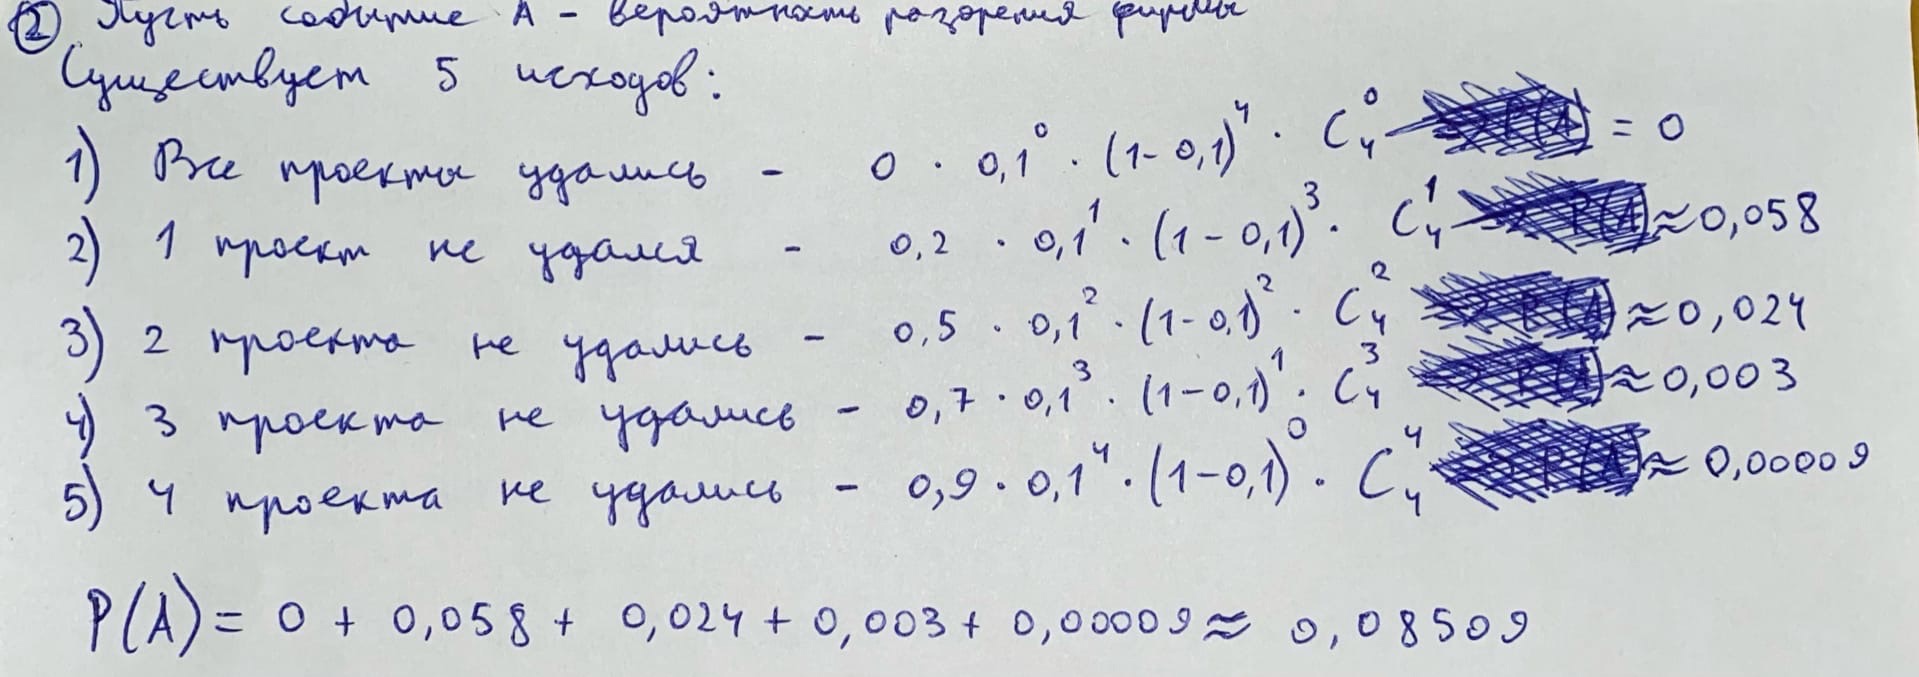 ② Пусть событие A - вероятность разорения фирмы
Существует 5 исходов:
1) Все проекты удались - 0 · 0,1⁰ · (1-0,1)⁴ · C₄⁰ = 0
2) 1 проект не удался - 0,2 · 0,1¹ · (1-0,1)³ · C₄¹ ≈ 0,058
3) 2 проекта не удались - 0,5 · 0,1² · (1-0,1)² · C₄² ≈ 0,024
4) 3 проекта не удались - 0,7 · 0,1³ · (1-0,1)¹ · C₄³ ≈ 0,003
5) 4 проекта не удались - 0,9 · 0,1⁴ · (1-0,1)⁰ · C₄⁴ ≈ 0,00009
P(A) = 0 + 0,058 + 0,024 + 0,003 + 0,00009 ≈ 0,08509